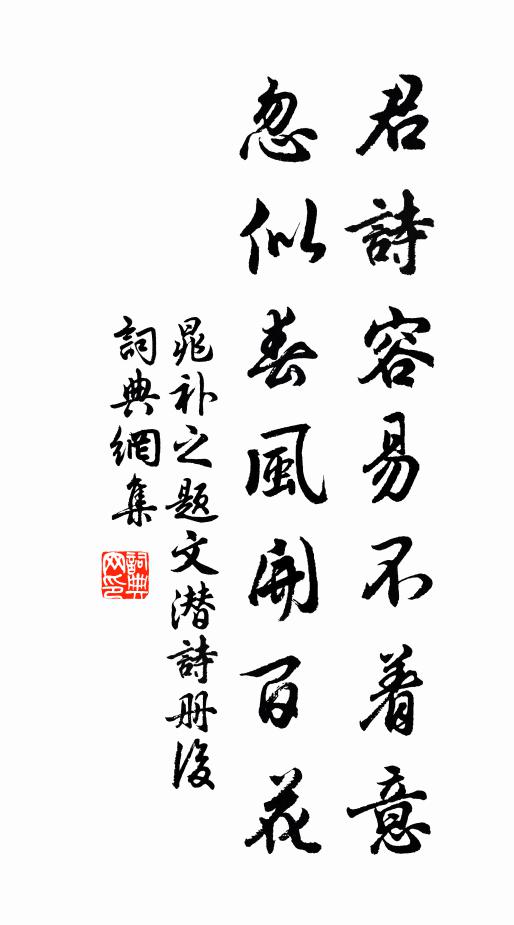 君詩容易不着意
忽似春風開百花
晁补之题文潜詩册後
詞典網集
詞典网印